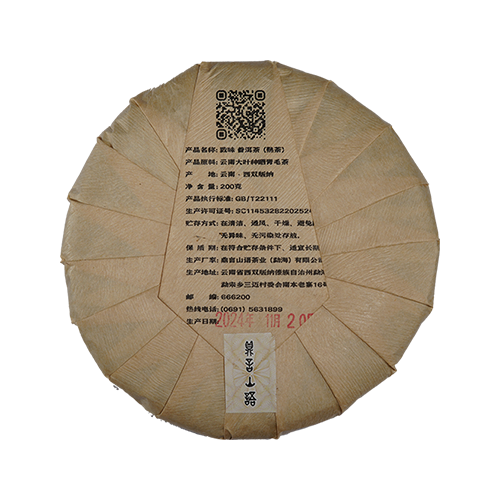 产品名称：致味 普洱茶（熟茶）
产品原料：云南大叶种晒青毛茶
产 地：云南·西双版纳
净 含 量：200克
产品执行标准：GB/T22111
生产许可证号：SC11453282202524
贮存方式：在清洁、通风、干燥、避免
无异味、无污染处存放。
保 质 期：在符合贮存条件下，适宜长期
生产厂家：鼎青山语茶业（勐海）有限公
生产地址：云南省西双版纳傣族自治州勐
勐宋乡三迈村委会南本老寨16
邮 编：666200
热线电话：（0691）5631899
生产日期：2024年11月20